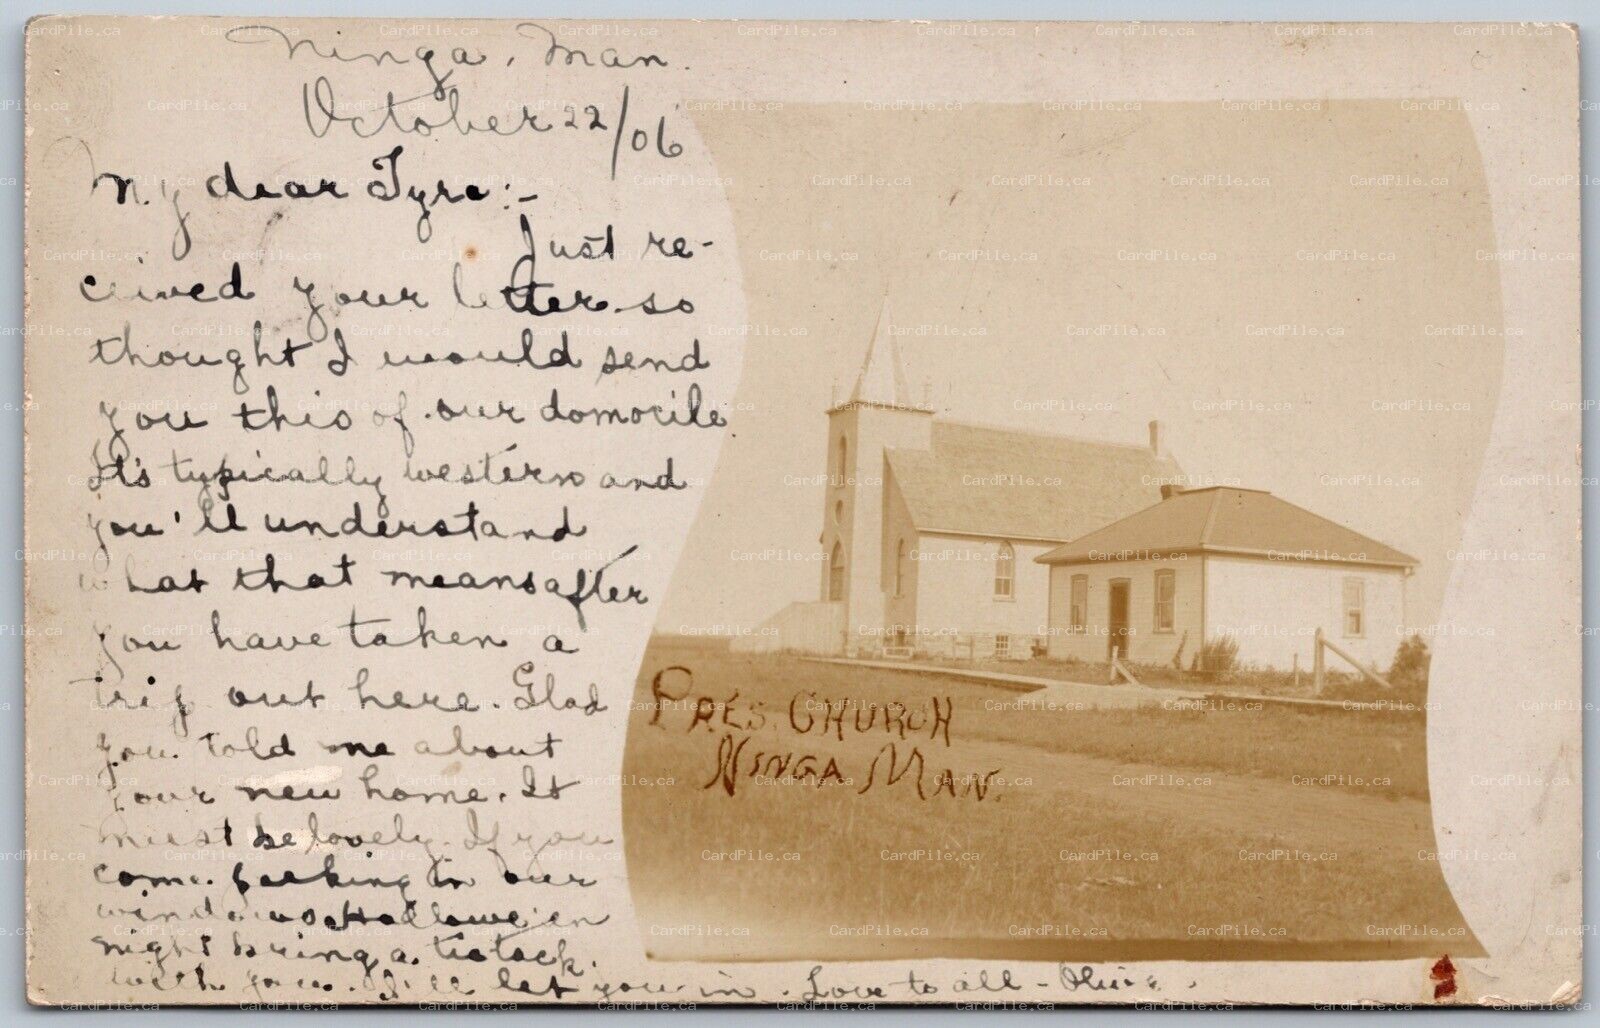 Ninga, Man.
October 22/06
My dear Tyra:-
Just re-
ceived your letter so
thought I would send
you this of our domocile
It's typically western and
you'll understand
what that means after
you have taken a
trip out here. Glad
you told me about
your new home. It
must be lovely. If you
come peeking in our
windows Hallowe'en
night bring a tictack
with you. I'll let you in. Love to all - Olive.
PRES. CHURCH
NINGA MAN.
CardPile.ca